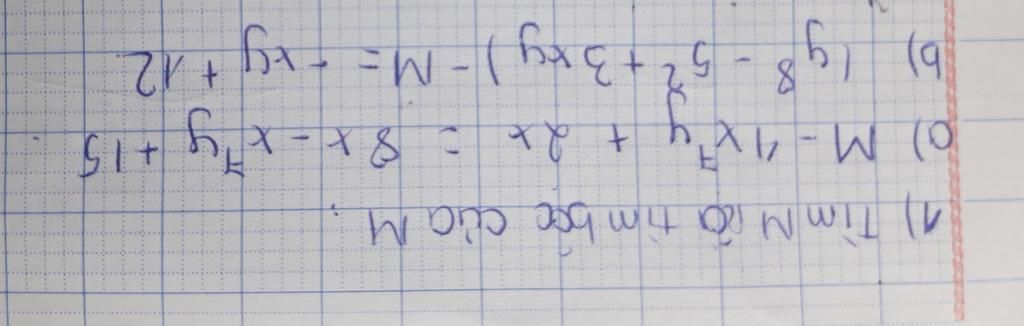 1) Tìm M và tìm bậc của M.
a) M - 4x⁷y + 2x = 8x - x⁷y + 15
b) (y⁸ - 5² + 3xy) - M = - xy + 12